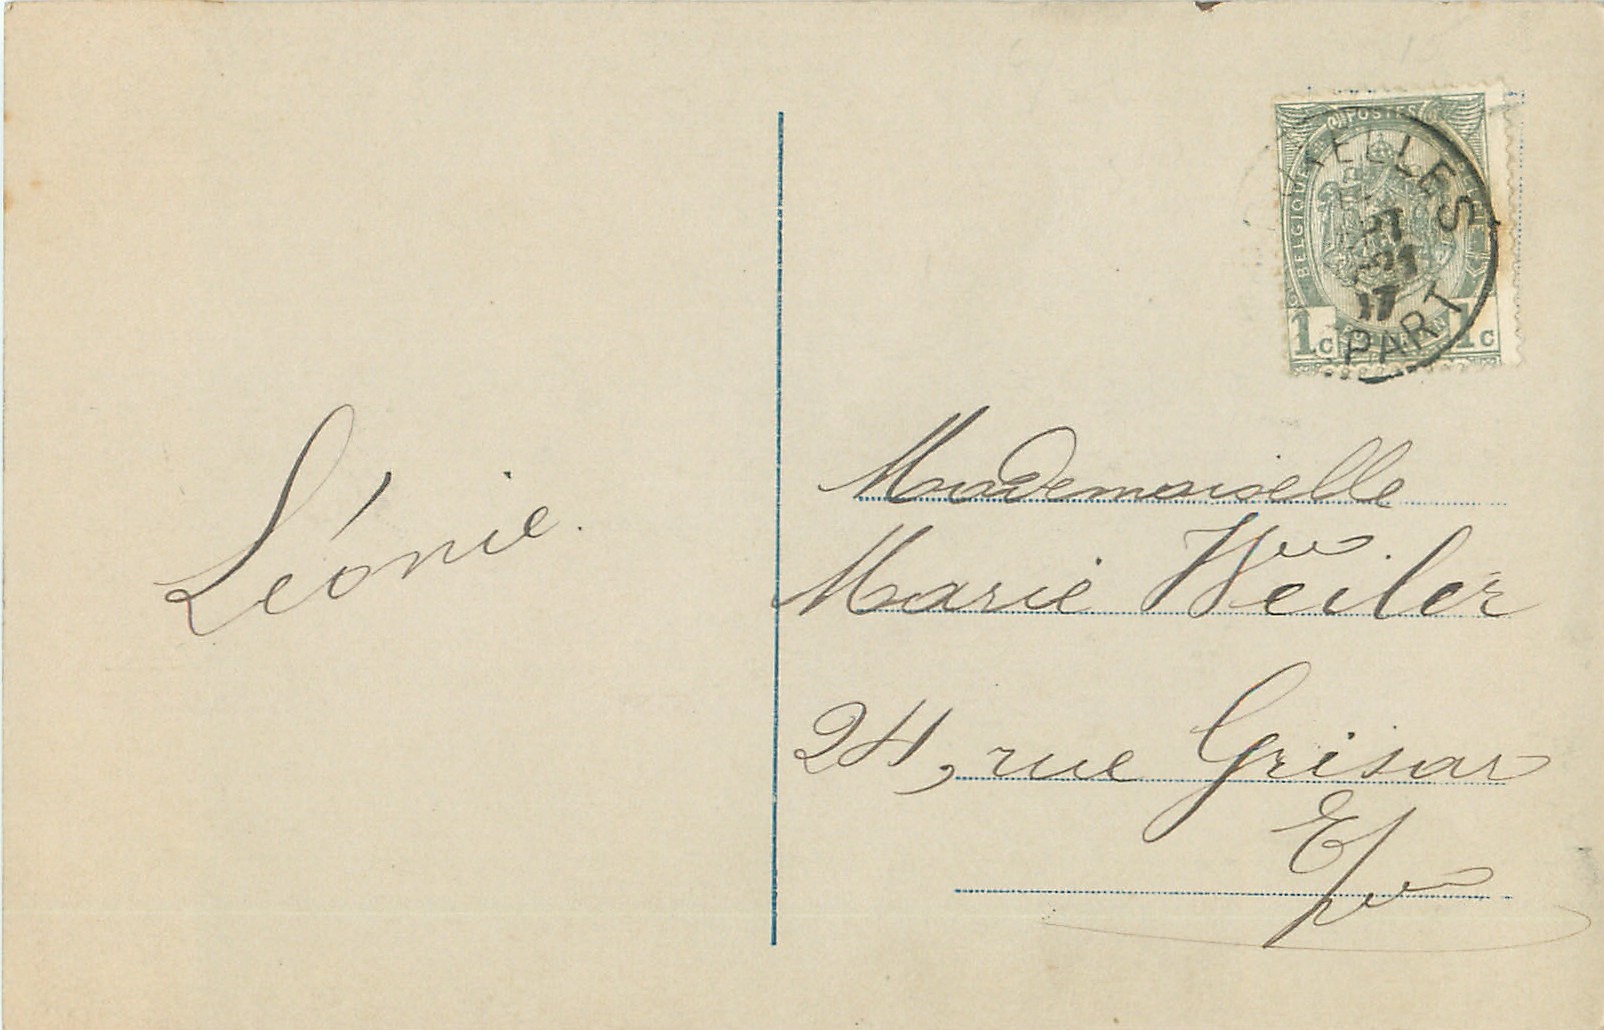 POSTES
BELGIQUE
ELLES
17
PART
1c 1c
Léonie.
Mademoiselle
Marie Weiler
24, rue Grisar
E/v